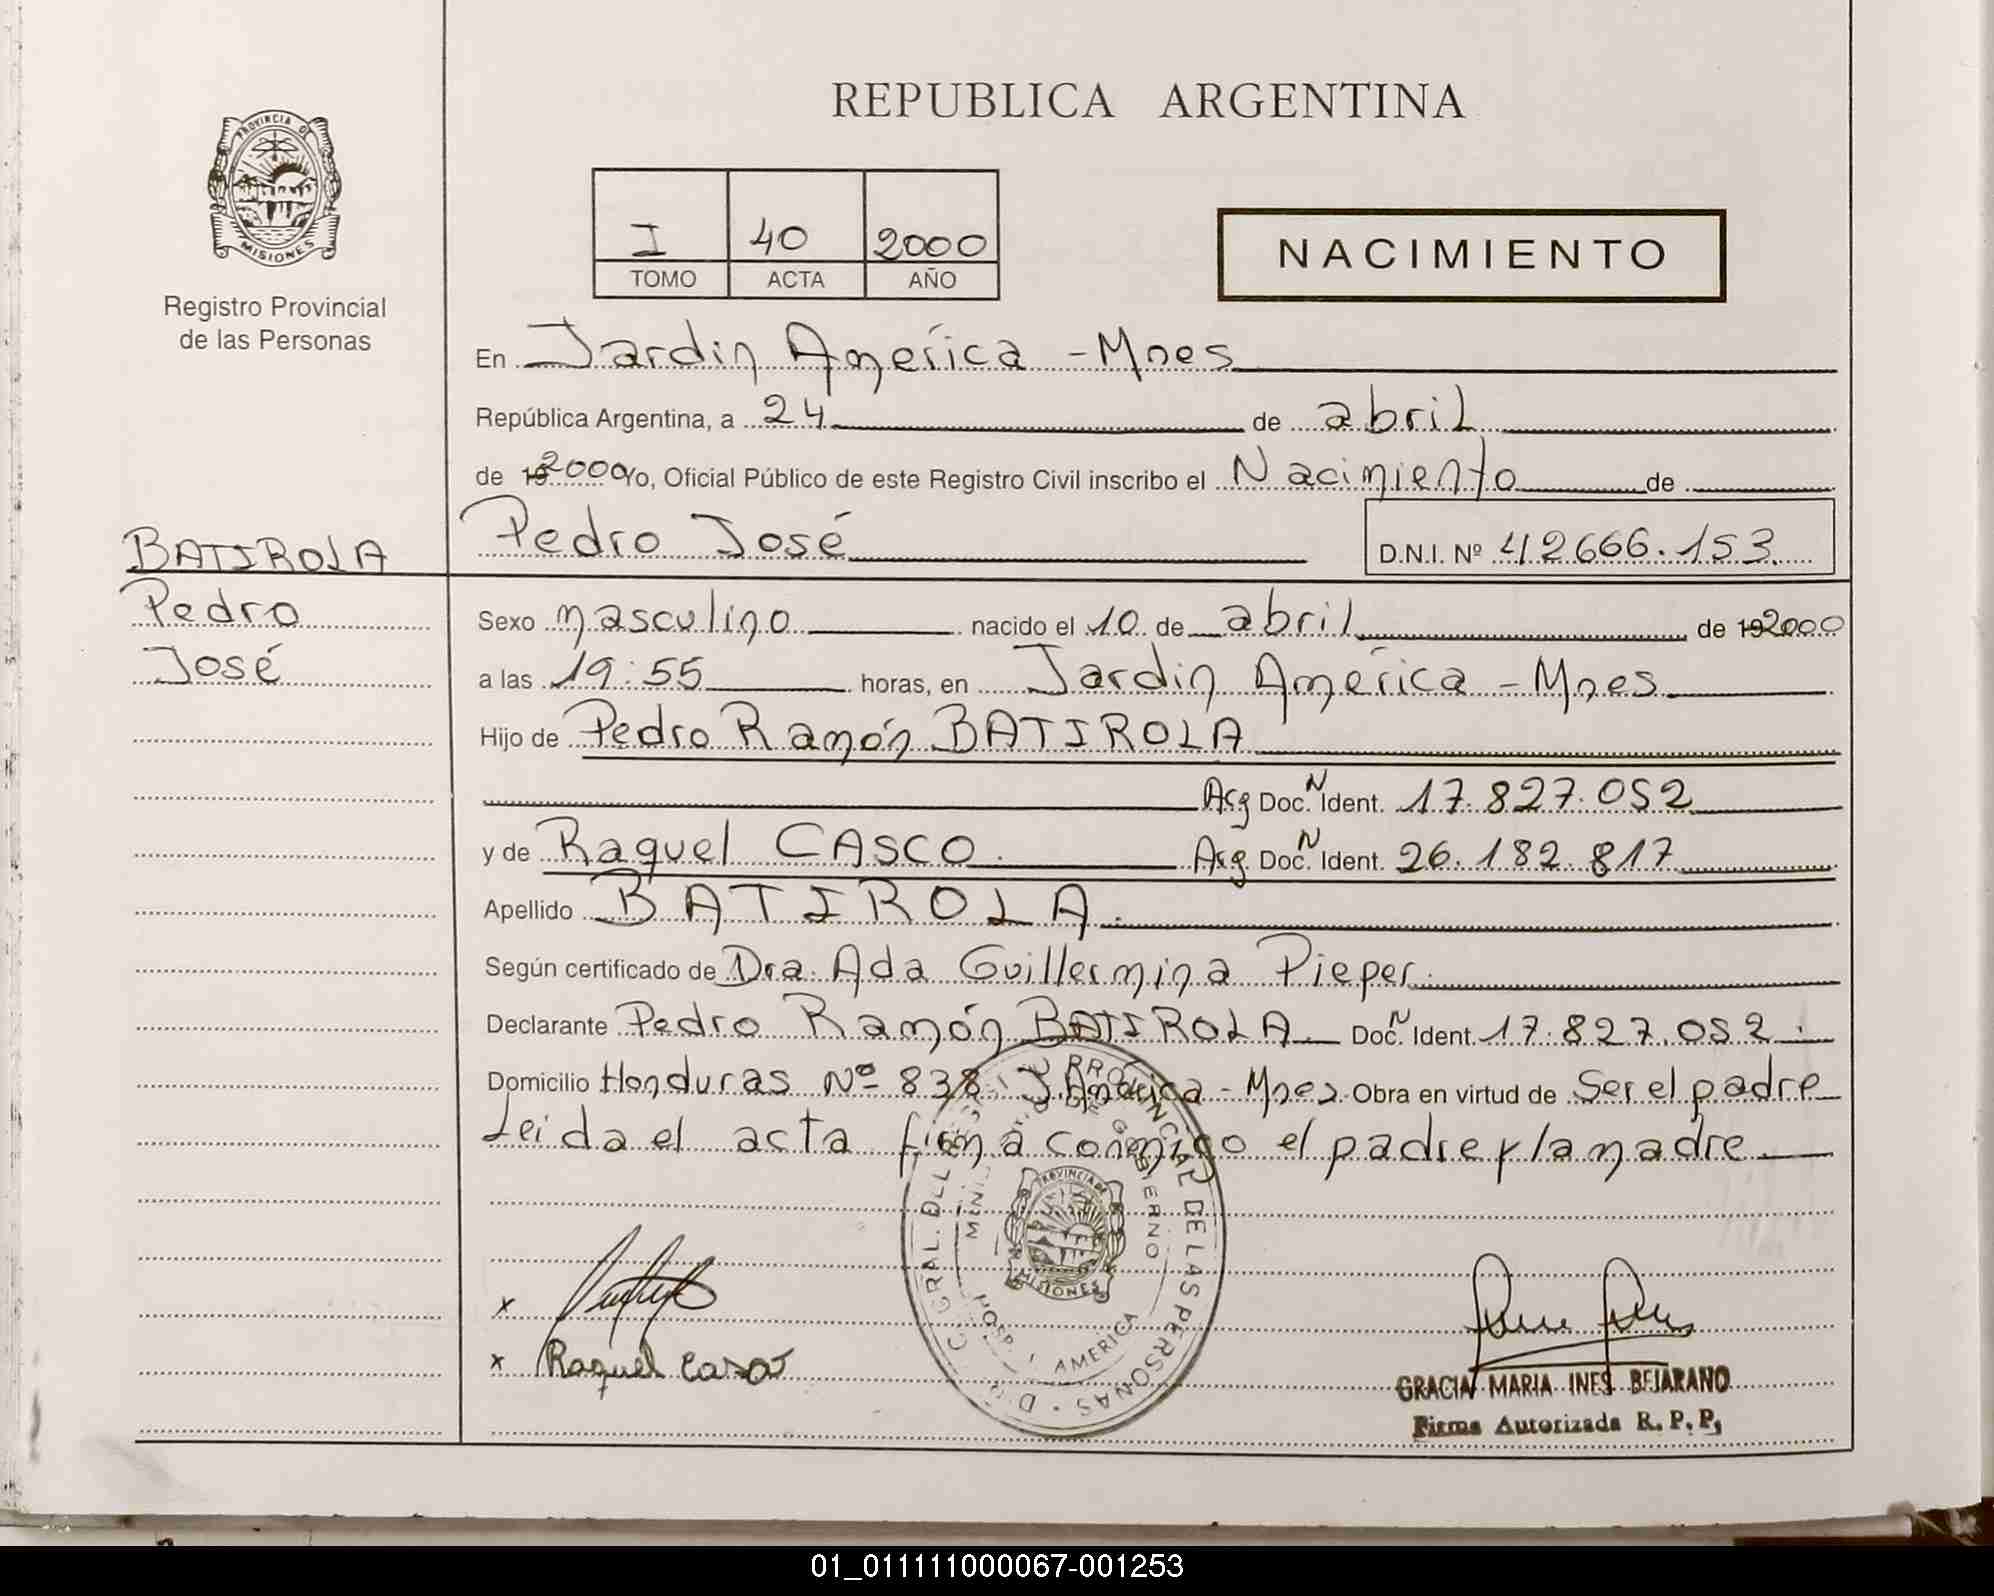 REPUBLICA ARGENTINA
PROVINCIA DE
MISIONES
Registro Provincial
de las Personas
I 40 2000
TOMO ACTA AÑO
NACIMIENTO
En Jardin América - Mnes
República Argentina, a 24 de abril
de 19 2000 Yo, Oficial Público de este Registro Civil inscribo el Nacimiento de
BATIROLA
Pedro
José
Pedro José D.N.I. Nº 42666.153
Sexo masculino nacido el 10 de abril de 19 2000
a las 19:55 horas, en Jardin América - Mnes
Hijo de Pedro Ramón BATIROLA
Arg Doc. N Ident. 17.827.052
y de Raquel CASCO. Arg. Doc. N Ident. 26.182.817
Apellido BATIROLA.
Según certificado de Dra. Ada Guillermina Pieper.
Declarante Pedro Ramón BATIROLA. Doc. N Ident. 17.827.052.
Domicilio Honduras Nº 838 J. América - Mnes. Obra en virtud de Ser el padre
Leida el acta firma conmigo el padre y la madre
PROVINCIAL DE LAS PERSONAS
GOBIERNO
PROVINCIA DE
MISIONES
HOSP. J. AMERICA
x
x Raquel Casco
GRACIA MARIA INES BEJARANO
Firma Autorizada R. P. P.
01_011111000067-001253